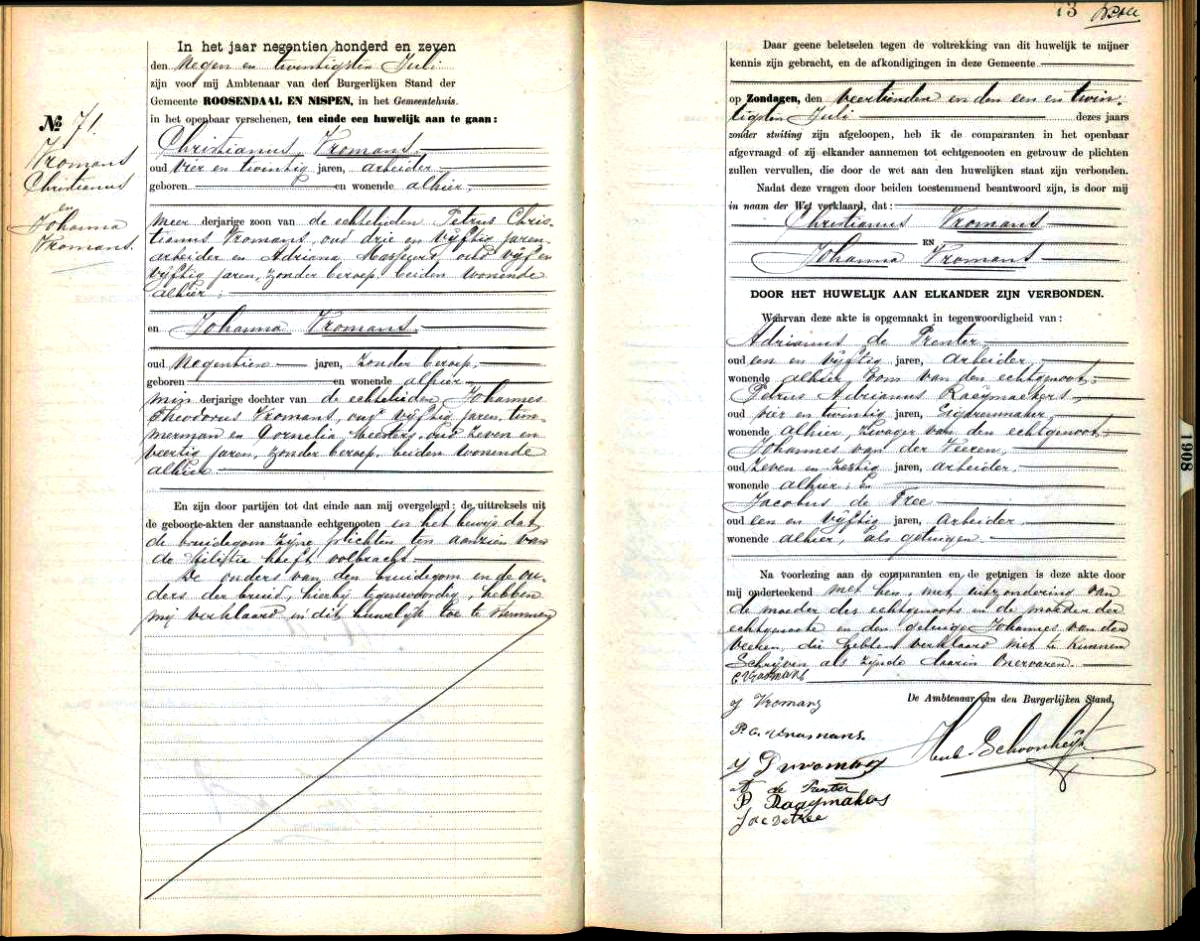 In het jaar negentien honderd en zeven
den Negen en twintigsten Juli
zijn voor mij Ambtenaar van den Burgerlijken Stand der
Gemeente ROOSENDAAL EN NISPEN, in het Gemeentehuis.
in het openbaar verschenen, ten einde een huwelijk aan te gaan:
Nº 71.
Vromans
Christianus
en
Johanna
Vromans.
Christianus Vromans,
oud vier en twintig jaren, arbeider
geboren en wonende alhier,
meer derjarige zoon van de echtelieden Petrus Chris-
tianus Vromans, oud drie en vijftig jaren
arbeider en Adriana oud vijf en
vijftig jaren, zonder beroep, beiden wonende
alhier;
en Johanna Vromans,
oud Negentien jaren, zonder beroep,
geboren en wonende alhier
min derjarige dochter van de echtelieden Johannes
Theodorus Vromans, oud vijftig jaren, tim-
merman en Cornelia Meesters, oud zeven en
veertig jaren, zonder beroep, beiden wonende
alhier.
En zijn door partijen tot dat einde aan mij overgelegd: de uittreksels uit
de geboorte-akten der aanstaande echtgenooten en het bewijs dat
de bruidegom zijne plichten ten aanzien van
de Militie heeft volbracht.
De ouders van den bruidegom en de ou-
ders der bruid, hierbij tegenwoordig, hebben
mij verklaard in dit huwelijk toe te stemmen
73
Daar geene beletselen tegen de voltrekking van dit huwelijk te mijner
kennis zijn gebracht, en de afkondigingen in deze Gemeente
op Zondagen, den veertienden en den een en twin-
tigsten Juli dezes jaars
zonder stuiting zijn afgeloopen, heb ik de comparanten in het openbaar
afgevraagd of zij elkander aannemen tot echtgenooten en getrouw de plichten
zullen vervullen, die door de wet aan den huwelijken staat zijn verbonden.
Nadat deze vragen door beiden toestemmend beantwoord zijn, is door mij
in naam der Wet verklaard, dat:
Christianus Vromans
EN
Johanna Vromans
DOOR HET HUWELIJK AAN ELKANDER ZIJN VERBONDEN.
Waarvan deze akte is opgemaakt in tegenwoordigheid van:
Adrianus de Prenter,
oud een en vijftig jaren, arbeider,
wonende alhier, Oom van den echtgenoot;
Petrus Adrianus Raeijmaekers,
oud vier en twintig jaren, Sigarenmaker,
wonende alhier, Zwager van den echtgenoot;
Johannes van der Veeken,
oud Zeven en Zestig jaren, arbeider,
wonende alhier; En
Jacobus de Free
oud een en vijftig jaren, Arbeider
wonende alhier, als getuigen.
Na voorlezing aan de comparanten en de getuigen is deze akte door
mij onderteekend met hen, met uitzondering van
de moeder des echtgenoots en de moeder der
echtgenoote en den getuige Johannes van der
Veeken, die hebben verklaard niet te kunnen
Schrijven als zijnde daarin onervaren.
C Vromans
De Ambtenaar van den Burgerlijken Stand,
J Vromans
P. C. Vromans.
Schoonheijt
A de Prenter
P Raaymakers
Jac de Free
1908